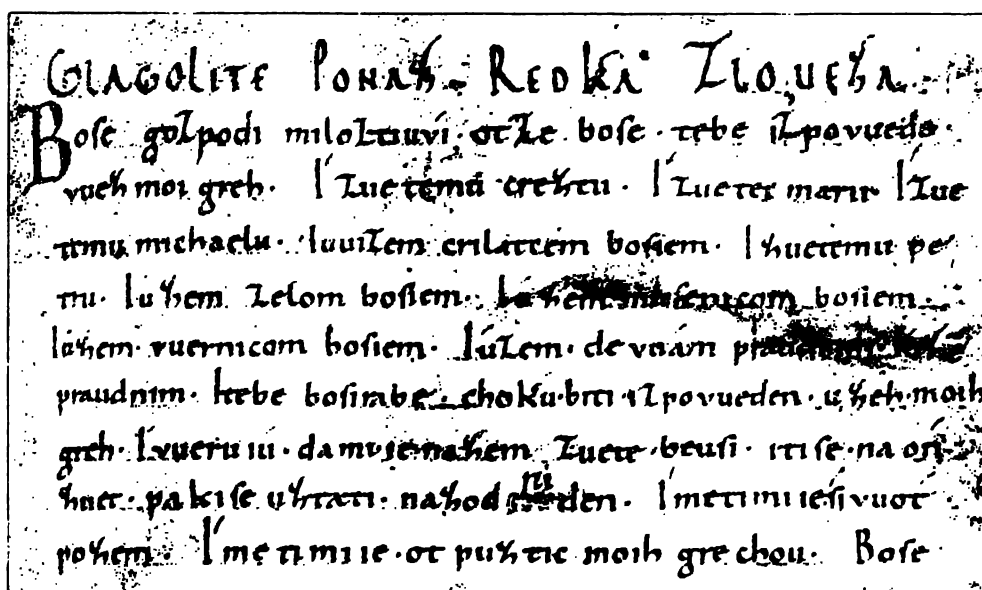 GLAGOLITE PONAZ. REDKA ZLOUEZA.
Bose gozpodi miloztiuvi. otze bose. tebe izpovuede.
vueh moi greh. I zuetemu creztu. I zuetei marii. I zue
temu michaelu. Iuuizem crilatcem bosiem. I zuetemu pe
tru. Iuzem zelom bosiem. Iuzem musenicom bosiem.
Iuzem vuernicom bosiem. Iuzem. devuam praudnim Iuzem
praudnim. Itebe bosirabe. choku. biti. izpovueden. uzeh. moih
greh. Ivueruiu. da mi. ie. nazem zuete. beusi. iti se. na osi
zuet. paki se uztati. nazodni den. Imeti mi ie sivuot
pozem. Imeti mi ie. ot puztic moih grechou. Bose